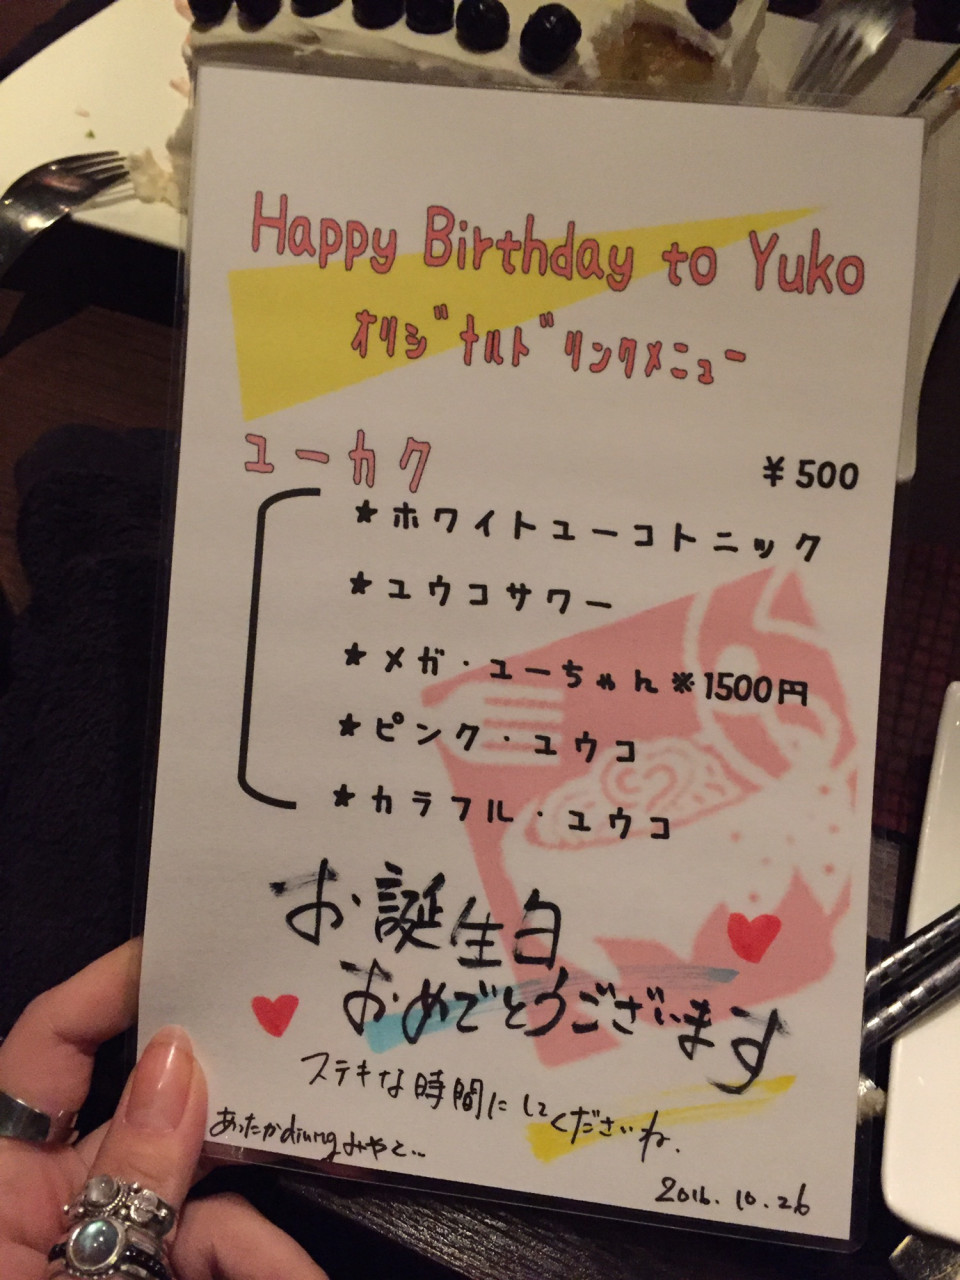 Happy Birthday to Yuko
オリジナルドリンクメニュー
ユーカク ¥500
★ホワイトユーコトニック
★ユウコサワー
★メガ・ユーちゃん※1500円
★ピンク・ユウコ
★カラフル・ユウコ
お誕生日
おめでとうございます
ステキな時間にしてくださいね.
あったかdiningみやと...
2016.10.26